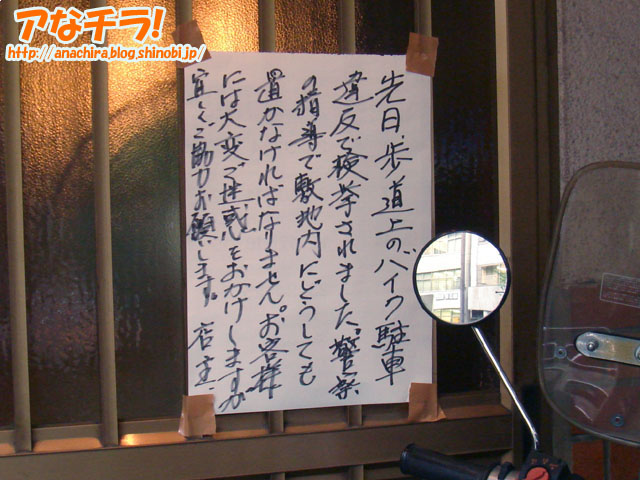 アなチラ!
http://anachira.blog.shinobi.jp/
先日歩道上のバイク駐車
違反で検挙されました。警察
の指導で敷地内にどうしても
置かなければなりません。お客様
には大変ご迷惑をおかけしますが
宜しくご協力お願いします。 店主